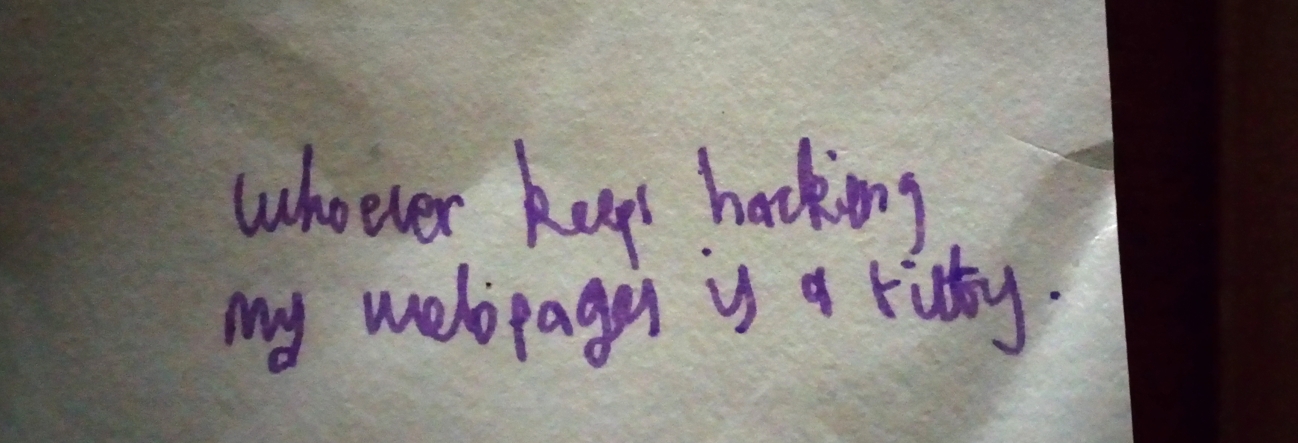 Whoever keeps hacking
my webpages is a